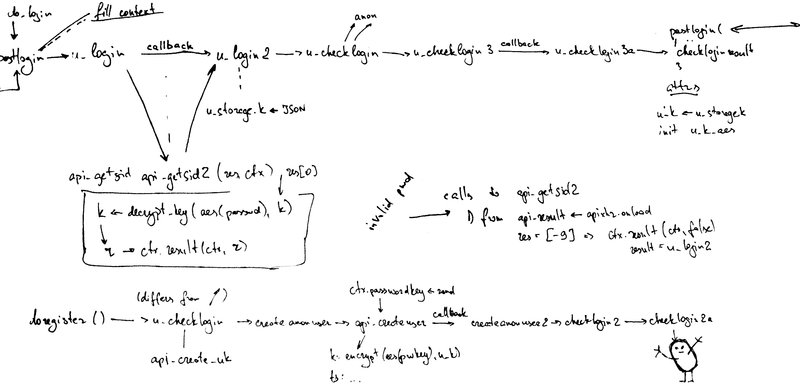 do_login
fill context
postlogin → u_login callback → u_login2 → u_checklogin → u_checklogin3 callback → u_checklogin3a → checklogin-result
anon
postlogin (
3
u_storage.k ← JSON
attrs
u_k ← u_storage.k
init u_k_aes
api_getsid api_getsid2 (res ctx) res[0]
k ← decrypt_key (aes(passwd), k)
r → ctx.result(ctx, r)
invalid pwd
calls to api_getsid2
1) from api_result ← apixhr.onload
res = [-9] => ctx.result(ctx, false)
result = u_login2
(differs from ↗)
ctx.passwordkey ← rand
doregister () → u_checklogin → createanonuser → api_createuser callback → createanonuser2 → checklogin2 → checklogin2a
api_create_uk
k: encrypt (aes(pwkey), u_k)
ts: ...